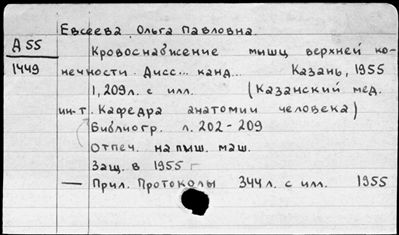 Евсеева Ольга Павловна
А 55
1449
Кровоснабжение мышц верхней ко-
нечности. Дисс... канд... Казань, 1955
1, 209 л. с илл. (Казанский мед.
ин-т. Кафедра анатомии человека)
Библиогр. л. 202-209
Отпеч. на пиш. маш.
Защ. в 1955 г
— Прил. Протоколы 344 л. с илл. 1955